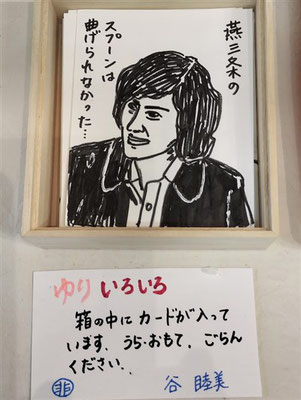 燕三条の
スプーンは
曲げられなかった…
ゆり いろいろ
箱の中に カードが入って
います、うら・おもて、ごらん
ください、、
韭
谷 睦美